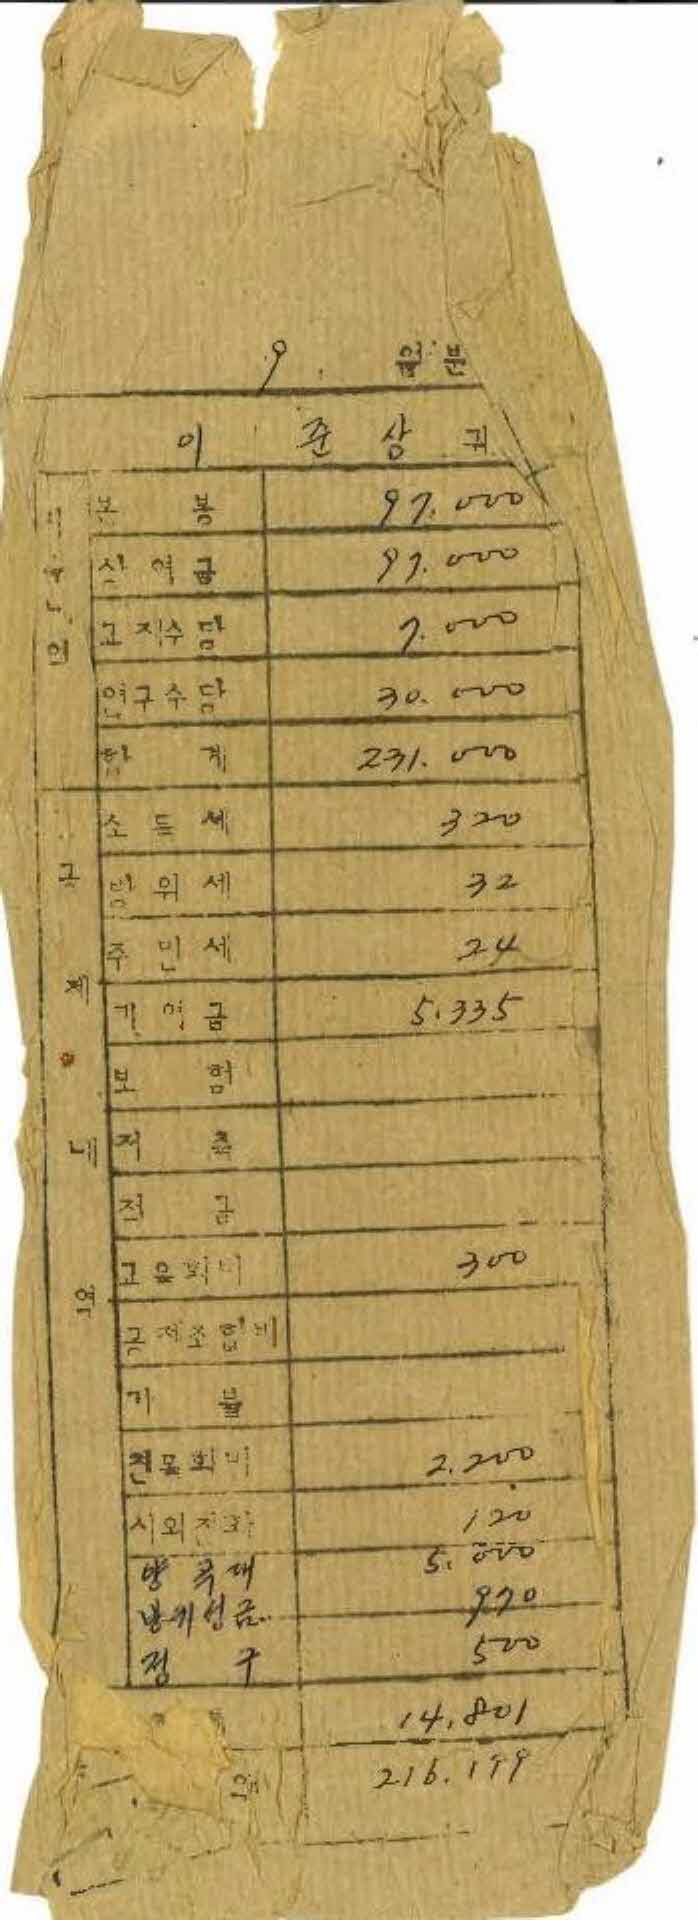 9. 월분
이 준 상 귀
본 봉 97.000
상여금 97.000
교직수당 7.000
연구수당 30.000
합 계 231.000
소득세 320
방위세 32
주민세 24
기여금 5.335
보 험
저 축
적 금
교육회비 300
공제조합비
기 불
친목회비 2.200
시외전화 120
양곡대 5.000
방위성금.. 970
정 구 500
14.801
액 216.199
공
제
내
역